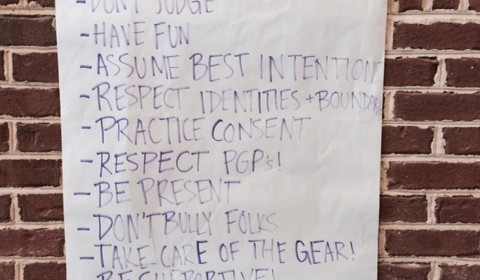 -DON'T JUDGE
-HAVE FUN
-ASSUME BEST INTENTIONS
-RESPECT IDENTITIES + BOUNDARIES
-PRACTICE CONSENT
-RESPECT PGPs!
-BE PRESENT
-DON'T BULLY FOLKS
-TAKE CARE OF THE GEAR!
-BE SUPPORTIVE!